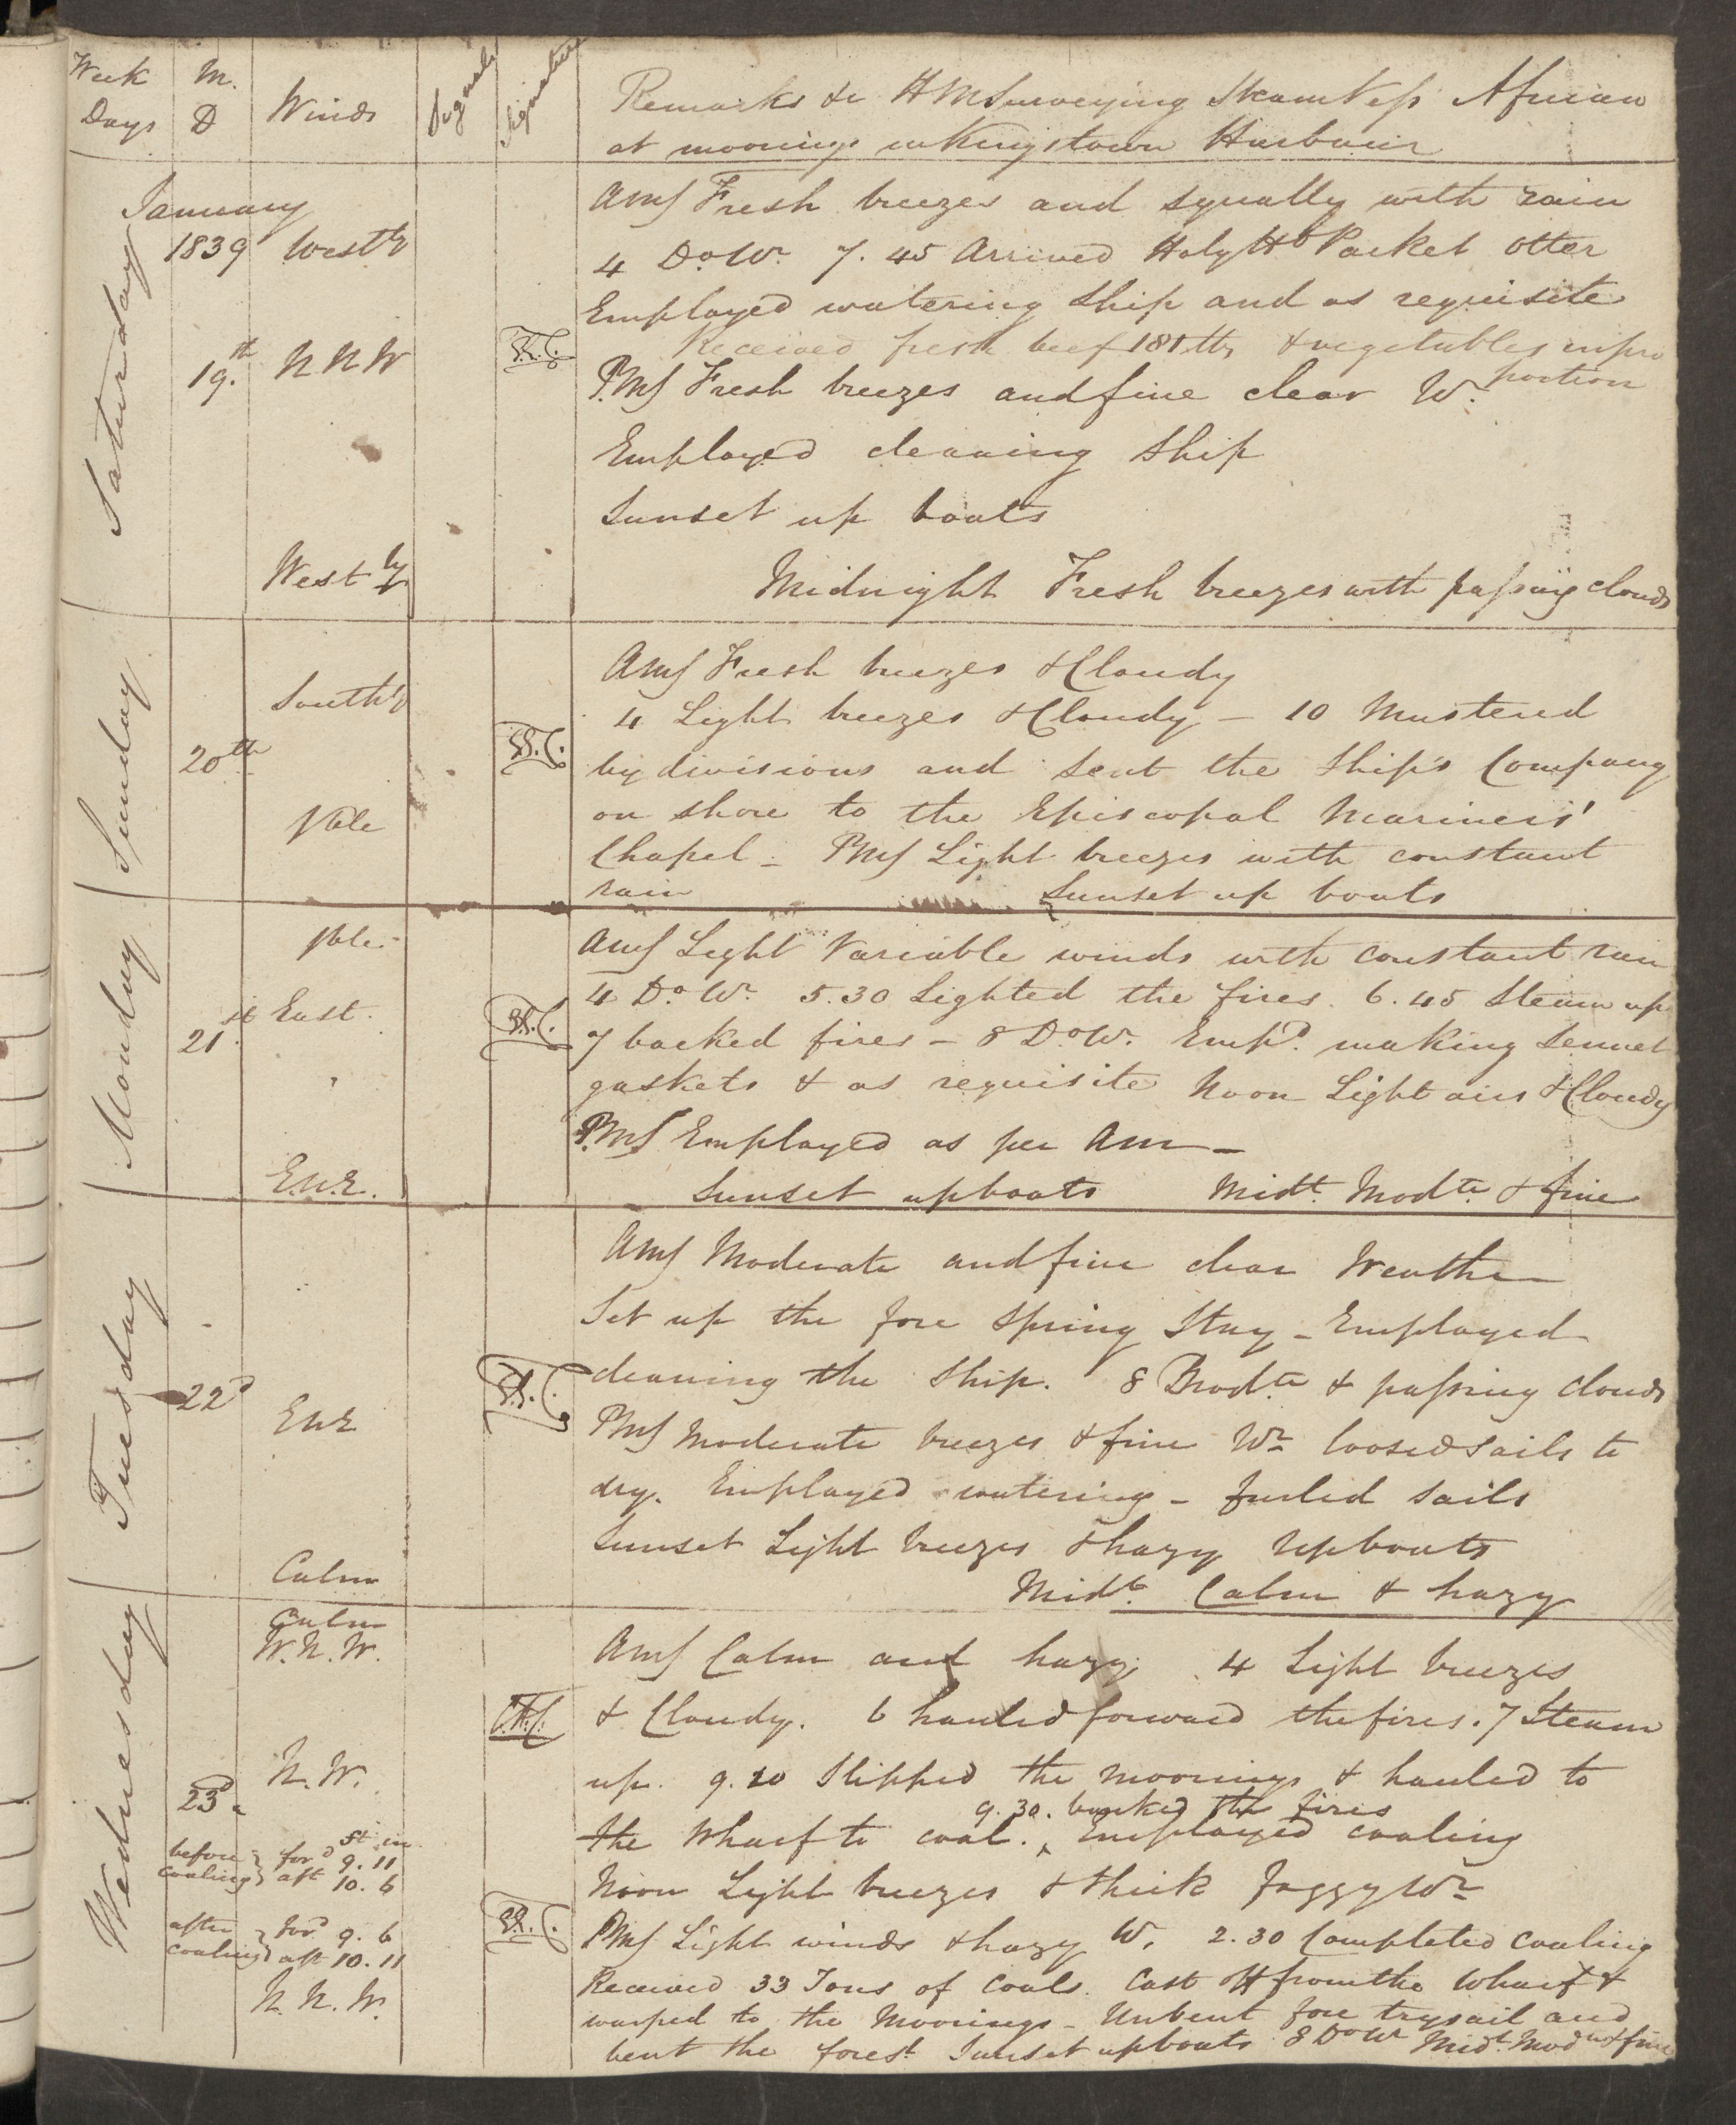 Week Days
M. D
Winds
Signals
Signature
Remarks &c HMSurveying Steam Vessl African
at moorings in Kingstown Harbour
January
1839
Saturday
19.th
Westly
N N W
Westly
AMs Fresh breezes and squally with rain
4 Do Wr. 7. 45 Arrived HolyHd Packet Otter
Employed watering Ship and as requisite
Received fresh beef 181 lbs & vegetables in pro
portion
PMs Fresh breezes and fine clear Wr.
Employed cleaning Ship
Sunset up boats
Midnight Fresh breezes with passing clouds
Sunday
20th
Southly
Vble
AMs Fresh breezes & Cloudy
4 Light breezes & Cloudy – 10 Mustered
by divisions and sent the Ship's Company
on shore to the Episcopal Mariners'
Chapel – PMs Light breezes with constant
rain Sunset up boats
Monday
21.st
Vble
East.
E.N.E.
AMs Light Variable winds with constant rain
4 Do Wr. 5.30 Lighted the fires. 6.45 Steam up
7 backed fires – 8 Do Wr. Empd. making Sennet
gaskets & as requisite Noon Light airs & Cloudy
PMs Employed as per Am –
Sunset up boats Midt. Modte & fine
Tuesday
22d
ENE
Calm
AMs Moderate and fine clear Weather
Set up the fore Spring Stay – Employed
cleaning the Ship. 8 Modte & passing clouds
PMs Moderate breezes & fine Wr loosed sails to
dry. Employed watering – furled sails
Sunset Light breezes & hazy Up boats
Midt. Calm & hazy
Wednesday
23d
Calm
W.N.W.
N.W.
ft in
before coaling } ford 9. 11
aft 10. 6
after coaling } ford 9. 6
aft 10. 11
N. N. W.
AMs Calm and hazy. 4 Light breezes
& Cloudy. 6 hauled forward the fires. 7 Steam
up. 9.20 Slipped the moorings & hauled to
9.30. banked the fires
the Wharf to coal. ^ Employed coaling
Noon Light breezes & thick foggy Wr
PMs Light winds & hazy W. 2.30 Completed coaling
Received 33 Tons of Coals. Cast off from the Wharf &
warped to the Moorings – Unbent fore trysail and
bent the forest. Sunset up boats 8 Do Wr Midt. Modte & fine